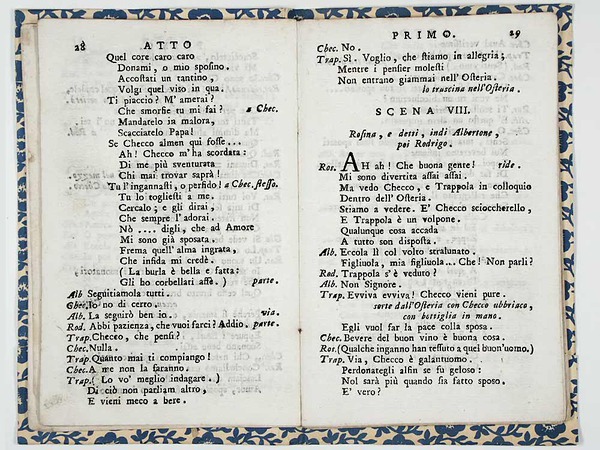 28 ATTO
Quel core caro caro
Donami, o mio sposino.
Accostati un tantino,
Volgi quel viso in qua.
Ti piaccio? M' amerai?
Che smorfie tu mi fai? a Chec.
Mandatelo in malora,
Scacciatelo Papa!
Se Checco almen qui fosse...
Ah! Checco m'ha scordata:
Di me più sventurata
Chi mai trovar saprà!
Tu l'ingannasti, o perfido! a Chec. stesso.
Tu lo togliesti a me.
Cercalo; e gli dirai,
Che sempre l'adorai.
Nò .... digli, che ad Amore
Mi sono già sposata,
Frema quell'alma ingrata,
Che infida mi credè.
( La burla è bella e fatta:
Gli ho corbellati affè. ) parte.
Alb Seguitiamola tutti.
Chec. Io no di certo.
Alb. La seguirò ben io. via.
Rod. Abbi pazienza, che vuoi farci? Addio. parte.
Trap. Checco, che pensi?
Chec. Nulla.
Trap. Quanto mai ti compiango!
Chec. A me non la faranno.
Trap. ( Lo vo' meglio indagare. )
Di ciò non parliam altro,
E vieni meco a bere.
PRIMO. 29
Chec. No.
Trap. Sì. Voglio, che stiamo in allegria;
Mentre i pensier molesti
Non entrano giammai nell' Osteria.
lo truscina nell'Osteria.
SCENA VIII.
Rosina, e detti, indi Albertone,
poi Rodrigo.
Ros. AH ah! Che buona gente! ride.
Mi sono divertita assai assai.
Ma vedo Checco, e Trappola in colloquio
Dentro dell' Osteria.
Stiamo a vedere. E' Checco scioccherello,
E Trappola è un volpone.
Qualunque cosa accada
A tutto son disposta.
Alb. Ercola il col volto stralunato.
Figliuola, mia figliuola... Che! Non parli?
Rod. Trappola s'è veduto?
Alb. Non Signore.
Trap. Evviva evviva! Checco vieni pure.
sorte dall'Osteria con Checco ubbriaco,
con bottiglia in mano.
Egli vuol far la pace colla sposa.
Chec. Bevere del buon vino è buona cosa.
Ros. (Qualche inganno han tessuto a quel buon'uomo.)
Trap. Via, Checco è galantuomo.
Perdonategli alfin se fu geloso:
Nol sarà più quando sia fatto sposo.
E' vero?